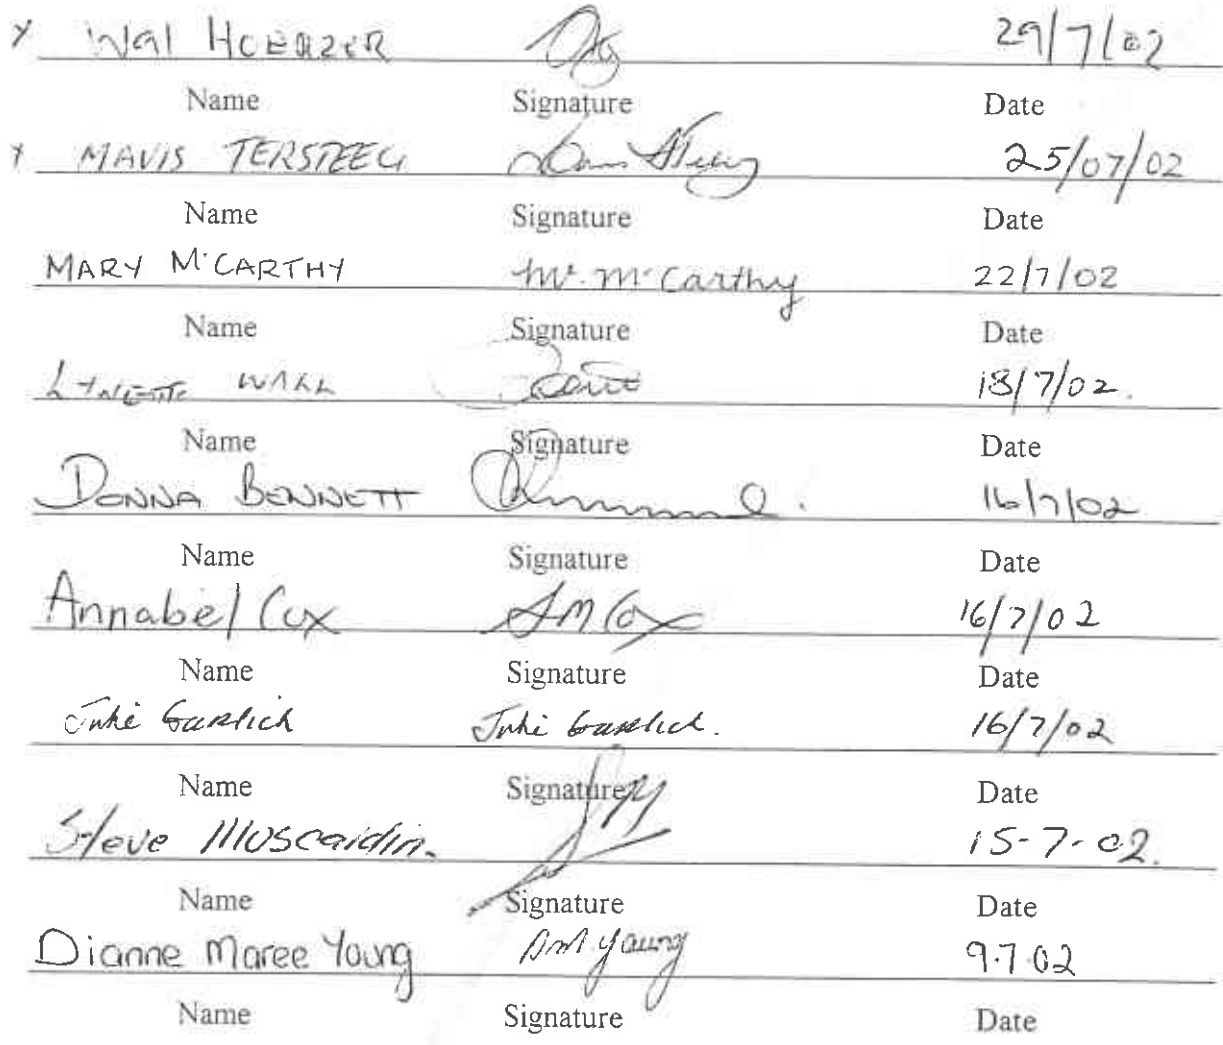 x Wal HOERZER 29/7/02
Name Signature Date
x MAVIS TERSTEEG 25/07/02
Name Signature Date
MARY McCARTHY M. McCarthy 22/7/02
Name Signature Date
LYNETTE WALL 18/7/02.
Name Signature Date
DONNA BENNETT 16/7/02
Name Signature Date
Annabel Cox AM Cox 16/7/02
Name Signature Date
Juhi Garlich Juhi Garlich. 16/7/02
Name Signature Date
Steve Muscardin. 15-7-02.
Name Signature Date
Dianne Maree Young DM Young 9.7.02
Name Signature Date